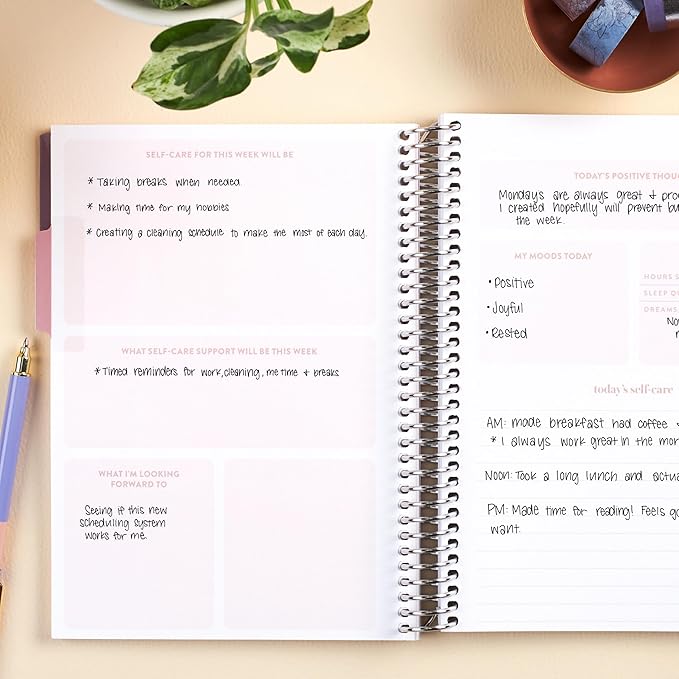 SELF-CARE FOR THIS WEEK WILL BE
* Taking breaks when needed
* Making time for my hobbies
* Creating a cleaning schedule to make the most of each day.
WHAT SELF-CARE SUPPORT WILL BE THIS WEEK
* Timed reminders for work, cleaning, me time + breaks
WHAT I'M LOOKING
FORWARD TO
Seeing if this new
scheduling system
works for me.
TODAY'S POSITIVE
Mondays are always great +
I created hopefully will prevent
the week.
MY MOODS TODAY
• Positive
• Joyful
• Rested
HOURS
SLEEP
DREAMS
today's self-care
AM: made breakfast had coffee
* I always work great in the
Noon: Took a long lunch and
PM: Made time for reading! Feels
want.